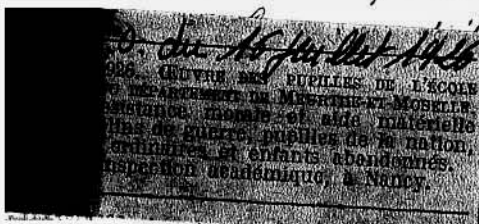 O. du 15 juillet 1926
1926. ŒUVRE DES PUPILLES DE L'ÉCOLE
DÉPARTEMENT DE MEURTHE-ET-MOSELLE.
sistance morale et aide matérielle
lins de guerre, pupilles de la nation,
ordinaires et enfants abandonnés.
nspection académique, à Nancy.